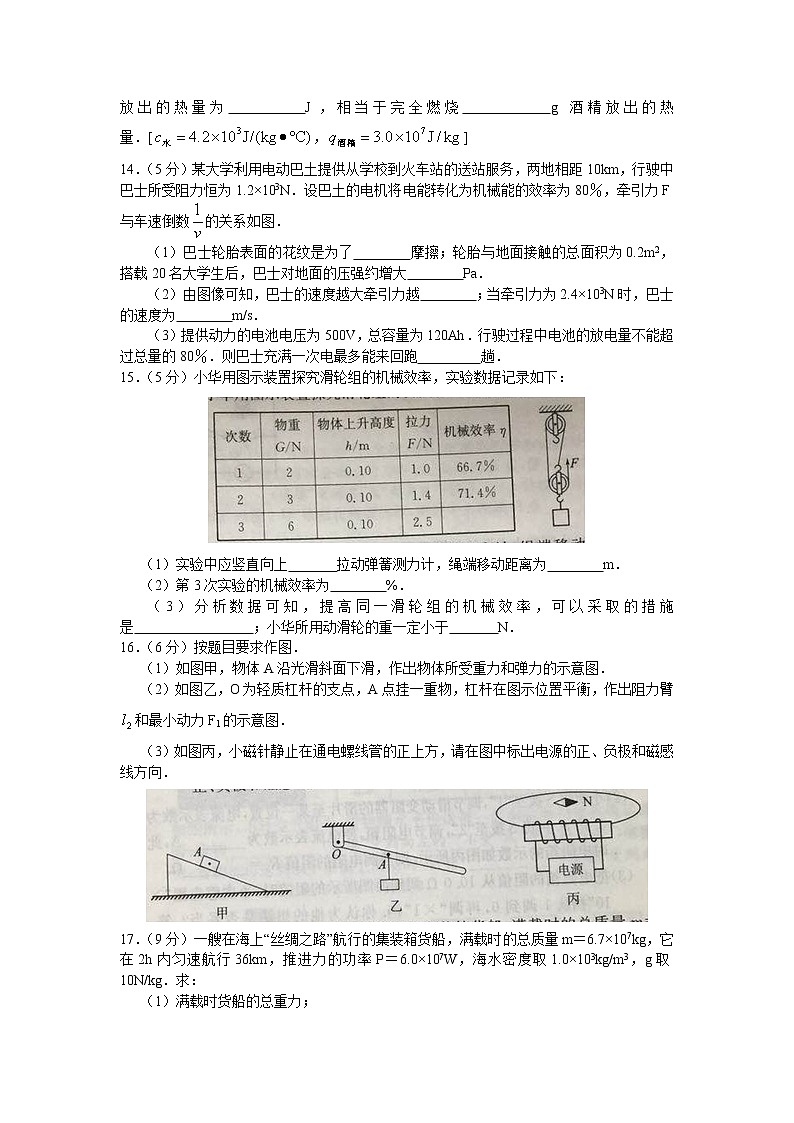 放出的热量为 J，相当于完全燃烧 g 酒精放出的热
量．[c水＝4.2×10³J/(kg●℃)，q酒精＝3.0×10⁷J/kg]
14.（5分）某大学利用电动巴士提供从学校到火车站的送站服务，两地相距 10km，行驶中
巴士所受阻力恒为 1.2×10³N．设巴士的电机将电能转化为机械能的效率为 80％，牵引力 F
与车速倒数1/v的关系如图．
（1）巴士轮胎表面的花纹是为了 摩擦；轮胎与地面接触的总面积为 0.2m²，
搭载 20 名大学生后，巴士对地面的压强约增大 Pa．
（2）由图像可知，巴士的速度越大牵引力越 ；当牵引力为 2.4×10³N 时，巴士
的速度为 m/s．
（3）提供动力的电池电压为 500V，总容量为 120Ah．行驶过程中电池的放电量不能超
过总量的 80％．则巴士充满一次电最多能来回跑 趟．
15.（5分）小华用图示装置探究滑轮组的机械效率，实验数据记录如下：
次数 物重 G/N 物体上升高度 h/m 拉力 F/N 机械效率 η
1 2 0.10 1.0 66.7％
2 3 0.10 1.4 71.4％
3 6 0.10 2.5
F
（1）实验中应竖直向上 拉动弹簧测力计，绳端移动距离为 m．
（2）第 3 次实验的机械效率为 %．
（3）分析数据可知，提高同一滑轮组的机械效率，可以采取的措施
是 ；小华所用动滑轮的重一定小于 N．
16.（6分）按题目要求作图．
（1）如图甲，物体 A 沿光滑斜面下滑，作出物体所受重力和弹力的示意图．
（2）如图乙，O 为轻质杠杆的支点，A 点挂一重物，杠杆在图示位置平衡，作出阻力臂
l₂和最小动力 F₁的示意图．
（3）如图丙，小磁针静止在通电螺线管的正上方，请在图中标出电源的正、负极和磁感
线方向．
A 甲
O A 乙
N 电源 丙
17.（9分）一艘在海上“丝绸之路”航行的集装箱货船，满载时的总质量 m＝6.7×10⁷kg，它
在 2h 内匀速航行 36km，推进力的功率 P＝6.0×10⁷W，海水密度取 1.0×10³kg/m³，g 取
10N/kg．求：
（1）满载时货船的总重力；